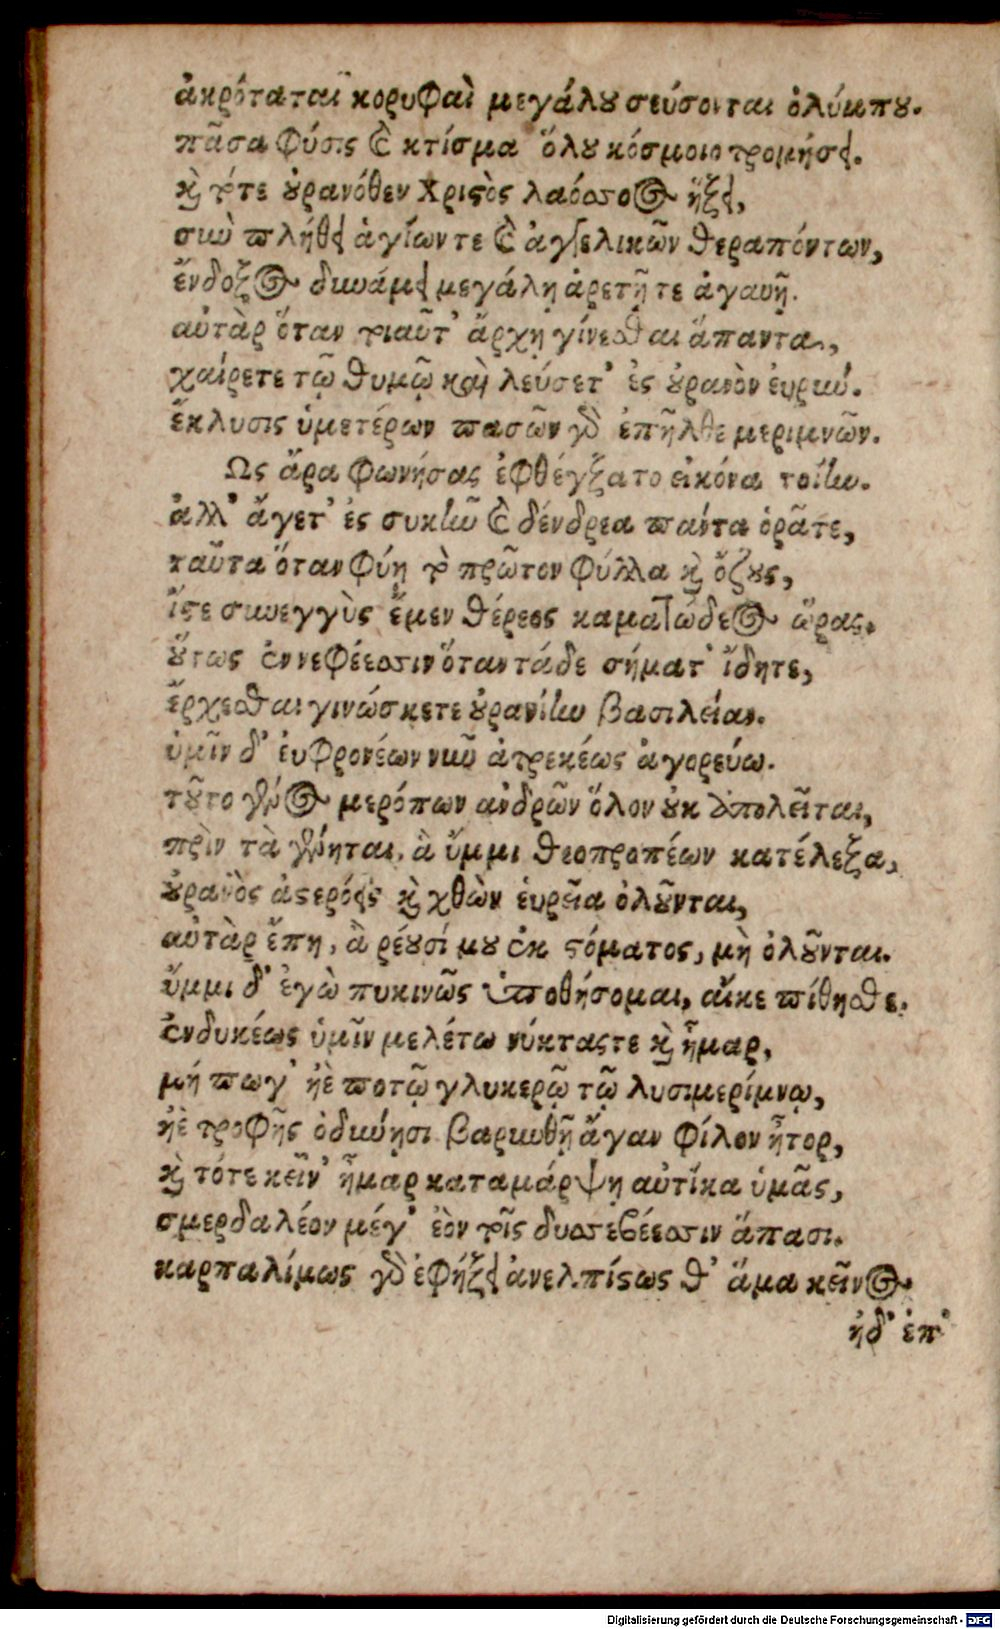 ἀκρόταται κορυφαὶ μεγάλȣ σεύσονται ὀλύμπȣ.
πᾶσα φύσις ϗ κτίσμα ὅλȣ κόσμοιο τρομήσει.
ϗ τότε ȣ̓ρανόθεν Χριϛὸς λαόσσοος ἥξει,
σιωὺ πλήθει ἁγίων τε ϗ ἀγγελικῶν θεραπόντων,
ἔνδοξος διωάμει μεγάλῃ ἀρετῇ τε ἀγαυῇ.
αὐτὰρ ὅταν τοιαῦτ' ἄρχῃ γίνεσθαι ἅπαντα,
χαίρετε τῷ θυμῷ καὶ λεύσετ' ἐς ȣ̓ρανὸν ἐυρυύ.
ἔκλυσις ὑμετέρων πασῶν γὸ ἐπῆλθε μεριμνῶν.
Ως ἄρα φωνήσας ἐφθέγξατο εἰκόνα τοίlω.
ἀλλ' ἄγετ' ἐς συκlῶ ϗ δένδρεα πάντα ὁρᾶτε,
ταῦτα ὅταν φύῃ τὸ πρῶτον φύλλα ϗ ὄζȣς,
ἴϛε σιωεγγὺς ἔμεν θέρεος καματώδεος ὥρας.
ȣ̔́τως ἐν νεφέεσσιν ὅταν τάδε σήματ' ἴδητε,
ἔρχεσθαι γινώσκετε ȣ̓ρανίlω βασιλείαν.
ὑμῖν δ' ἐυφρονέων νιῶ ἀτρεκέως ἀγορεύω.
τȣ͂το γένος μερόπων ἀνδρῶν ὅλον ȣ̓κ ἀπολεῖται,
πρὶν τὰ γένηται, ἃ ὔμμι θεοπροπέων κατέλεξα,
ȣ̓ρανὸς ἀϛερόεις ϗ χθὼν ἐυρεῖα ὀλȣ͂νται,
αὐτὰρ ἔπη, ἃ ῥέȣσί μȣ ἐκ ϛόματος, μὴ ὀλȣ͂νται.
ὔμμι δ' ἐγὼ πυκινῶς ὑποθήσομαι, αἴκε πίθησθε.
ἐνδυκέως ὑμῖν μελέτω νύκταςτε ϗ ἦμαρ,
μή πωγ' ἠὲ ποτῷ γλυκερῷ τῷ λυσιμερίμνῳ,
ἠὲ τροφῆς ὀδιύησι βαριωθῇ ἄγαν φίλον ἦτορ,
ϗ τότε κεῖν' ἦμαρ καταμάρψῃ αὐτίκα ὑμᾶς,
σμερδαλέον μέγ' ἐὸν τοῖς δυσσεβέεσσιν ἅπασι.
καρπαλίμως γὸ ἐφήξει ἀνελπίϛως θ' ἅμα κεῖνος
ἠδ' ἐπ'
Digitalisierung gefördert durch die Deutsche Forschungsgemeinschaft - DFG